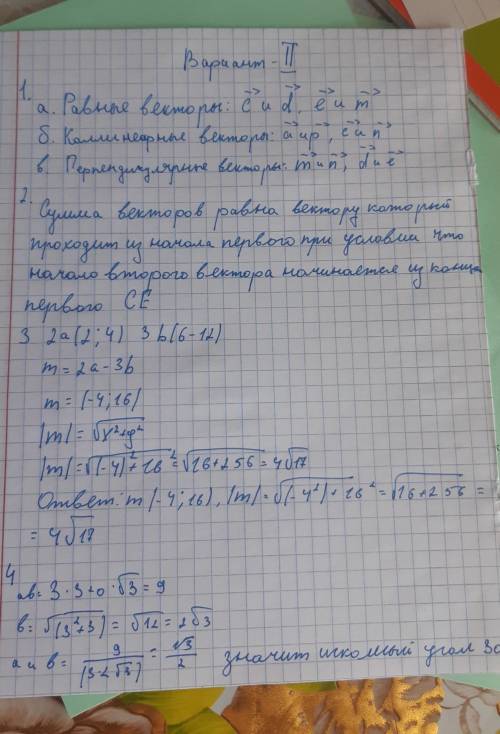 Вариант - II
1.
а. Равные векторы: c и d, e и m
б. Коллинеарные векторы: a и p, c и n
в. Перпендикулярные векторы: m и n, d и e
2.
Сумма векторов равна вектору который
проходит из начала первого при условии что
начало второго вектора начинается из конца
первого CE
3 2a(2;4) 3b(6-12)
m = 2a - 3b
m = (-4;16)
|m| = √x²+y²
|m| = √(-4)²+16² = √16+256 = 4√17
Ответ: m(-4;16), |m| = √(-4²)+16² = √16+256 =
= 4√17
4
ab = 3·3+0·√3 = 9
b = √(3²+3) = √12 = 2√3
a и b = 9/(3·2√3) = √3/2 значит искомый угол 30